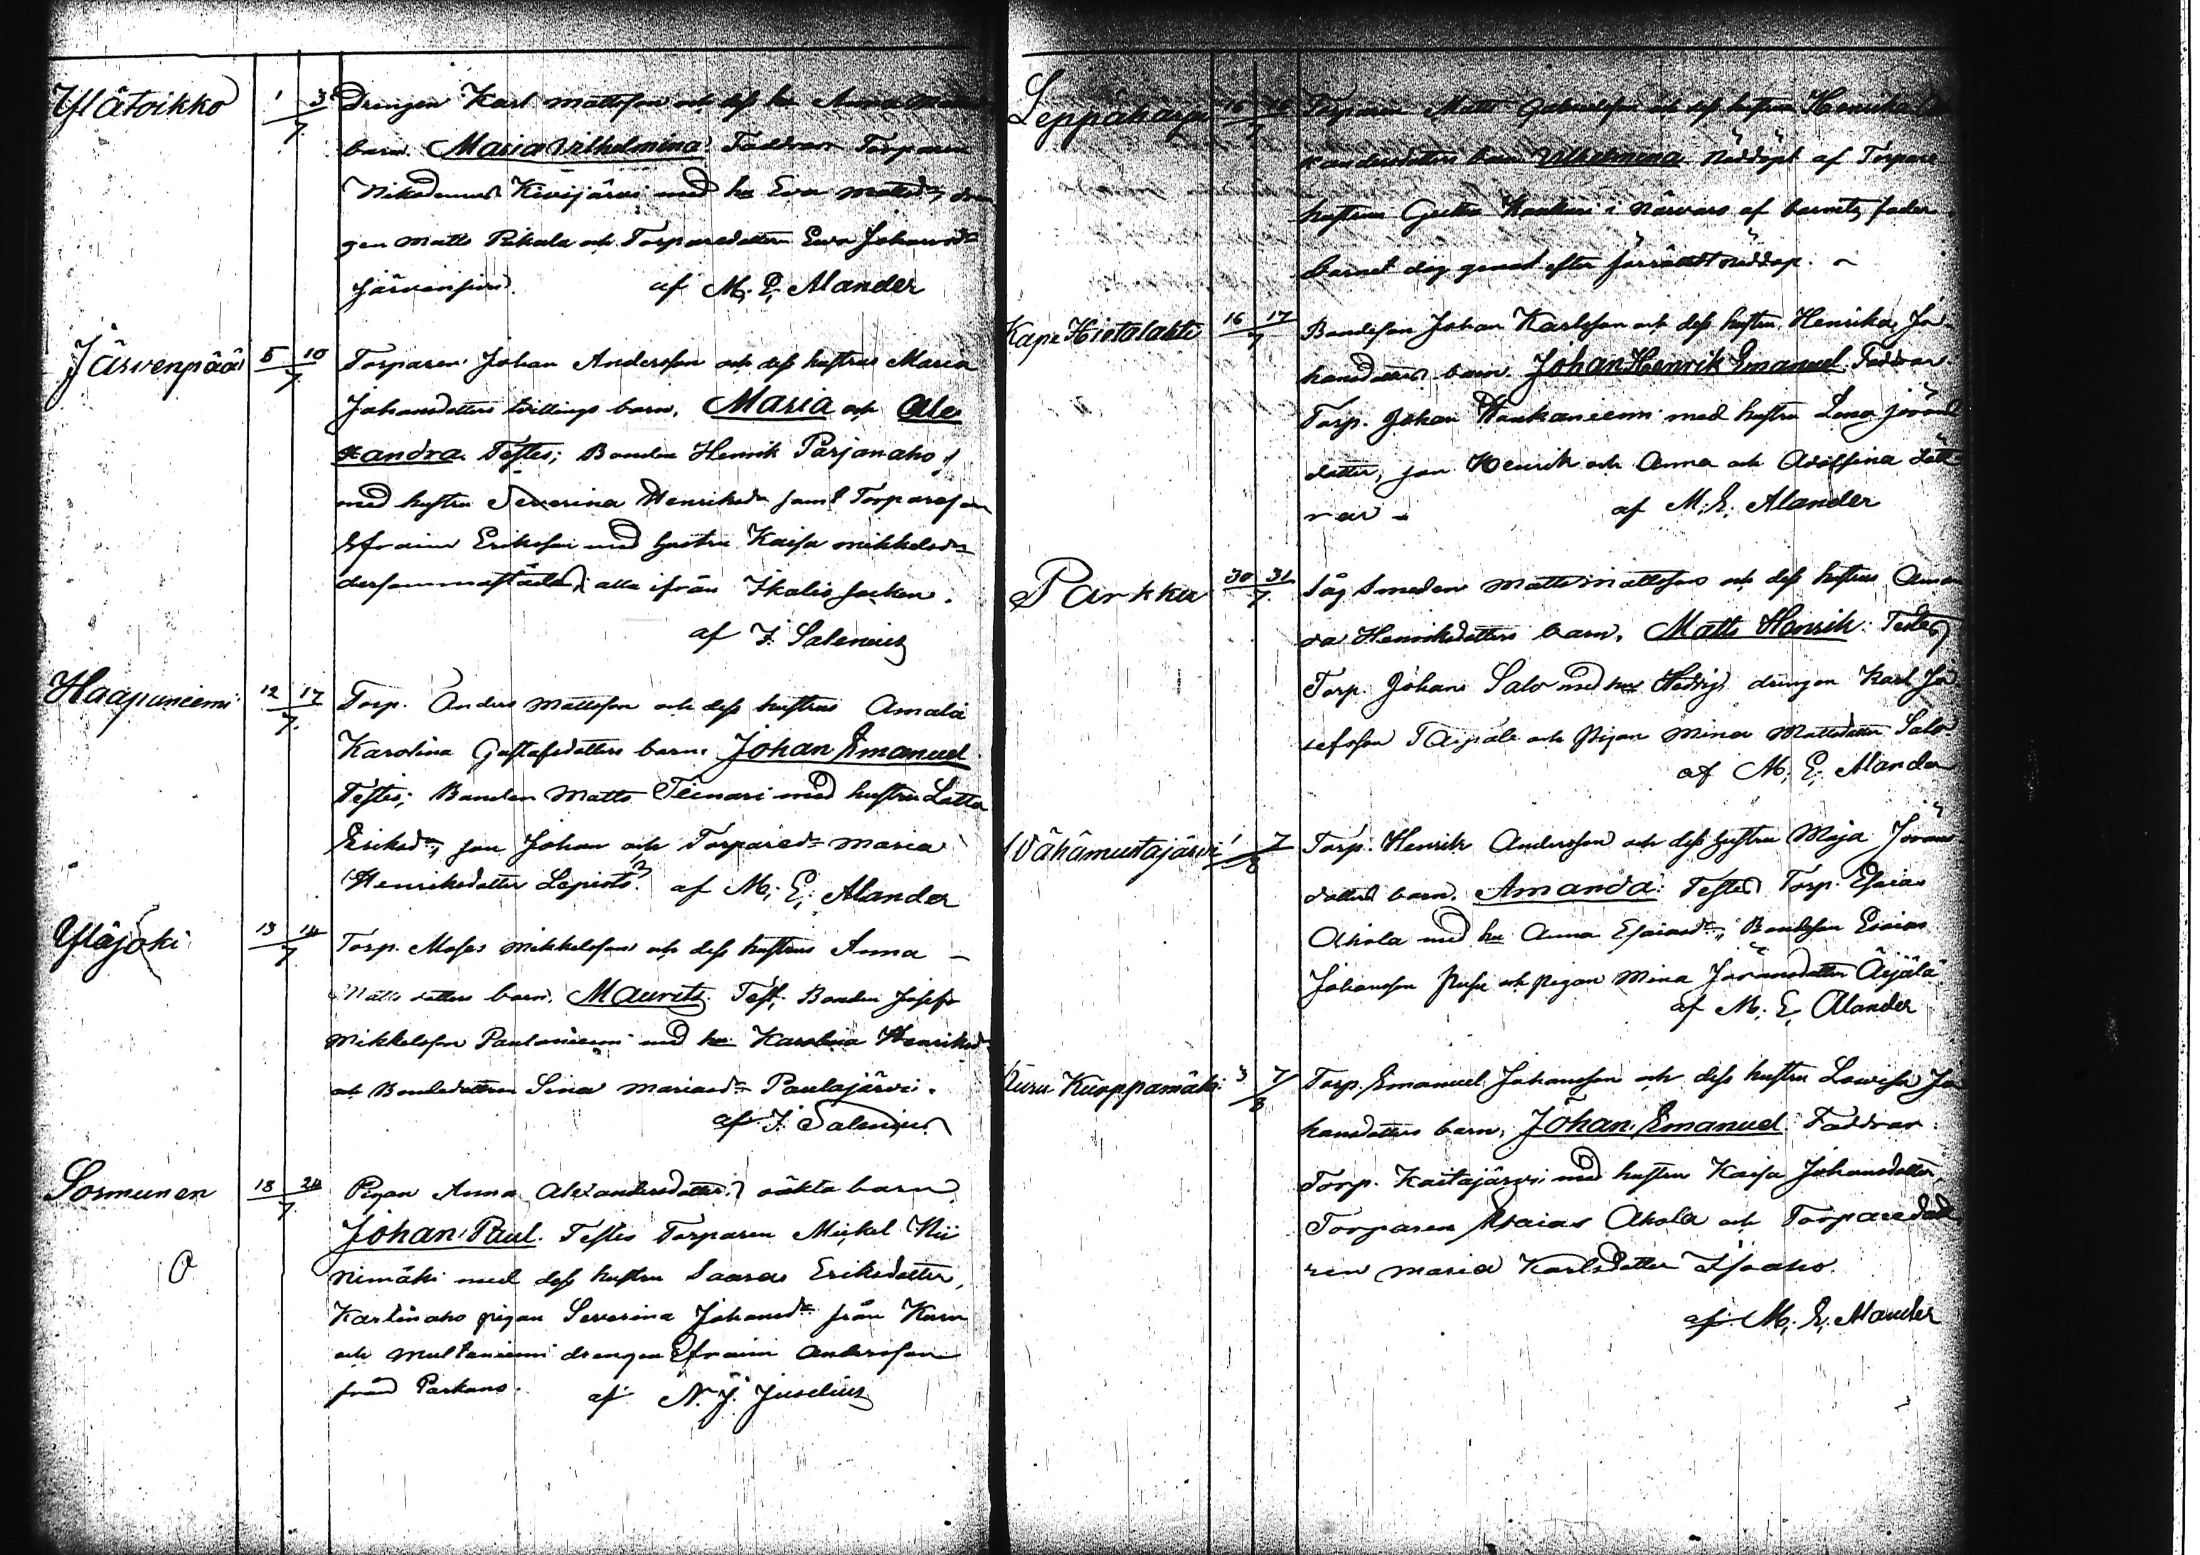 Ylätoikko 1 3/7 Drengen Karl Mattsson och dess hu Anna
barn Maria Vilhelmina. Faddrar Torparen
Nikodemus Kivijärvi med hu Eva Mattsdr, dren
gen Matts Pihala och Torparedottern Eva Johansdr
Järvenpää. af M. E. Alander
Järvenpää 5 10/7 Torparen Johan Andersson och dess hustrus Maria
Johansdotters tvillings barn, Maria och Ale
xandra. Testes; Bonden Henrik Parjanaho
med hustru Severina Henriksdr samt Torpareson
Efraim Eriksson med hustru Kaisa Mikkelsdr
dersammastädes, alla ifrån Ikalis socken.
af F. Salenius
Haapaniemi 12 17/7 Torp. Anders Mattsson och dess hustrus Amalia
Karolina Gustafsdotters barn, Johan Emanuel
Testes; Bonden Matts Teinari med hustru Lotta
Eriksdr, son Johan och Torparedr Maria
Henriksdotter Lepistö. af M. E. Alander
Yläjoki 13 14/7 Torp. Moses Mikkelsson och dess hustrus Anna
Matts dotters barn, Maurits. Test. Bonden Josef
Mikkelsson Pantaniemi med hu Karolina Henriksdr
och Bondedottren Sina Mariasdr Paulajärvi.
af F. Salenius
Sormunen 18 24/7 Pigan Anna Alexandersdotters oäkta barn
Johan Paul. Testes Torparen Mickel Nii
nimäki med dess hustru Saara Eriksdotter,
Karlinaho pigan Severina Johansdr från Kuru
och Multaniemi drengen Efraim Andersson
från Parkano. af N. J. Juselius
Leppäharju 16 16/7 Torparen Matts Gabrielsson och dess hustrus Henrika
xandersdotters barn Vilhelmina Nöddöpt af Torpare
hustrun Greta i närvaro af barnets fader.
Barnet dog genast efter förrättadt nöddop.
Hietalahti 16 17/7 Bondeson Johan Karlsson och dess hustru Henrika Jo
hansdotters barn. Johan Henrik Emanuel. Faddrar
Torp. Johan Haukaniemi med hustru Lena Jörans
dotter, son Henrik och Anna och Adolfina dött
rar - af M. E. Alander
Parkku 30 31/7 Såg smeden Matts Mattsson och dess hustrus Aman
da Henriksdotters barn. Matts Henrik. Testes
Torp. Johan Salo med hu Hedvig, drengen Karl Jo
sefsson Taipale och Pigan Mina Mattsdotter Salo
af M. E. Alander
Wähämustajärvi 1 7/8 Torp. Henrik Andersson och dess hustru Maja Jörans
dotters barn. Amanda. Testes Torp. Esaias
Ahola med hu Anna Esaiasdr, Bondeson Esaias
Johansson och pigan Mina Jöransdotter Äijälä
af M. E. Alander
Kuru Kuoppamäki 3 7/8 Torp. Emanuel Johansson och dess hustru Lowisa Jo
hansdotters barn, Johan Emanuel. Faddrar
Torp. Kaitajärvi med hustru Kaisa Johansdotter,
Torparen Esaias Ahola och Torparedott
ren Maria Karlsdotter Isoaho.
af M. E. Alander